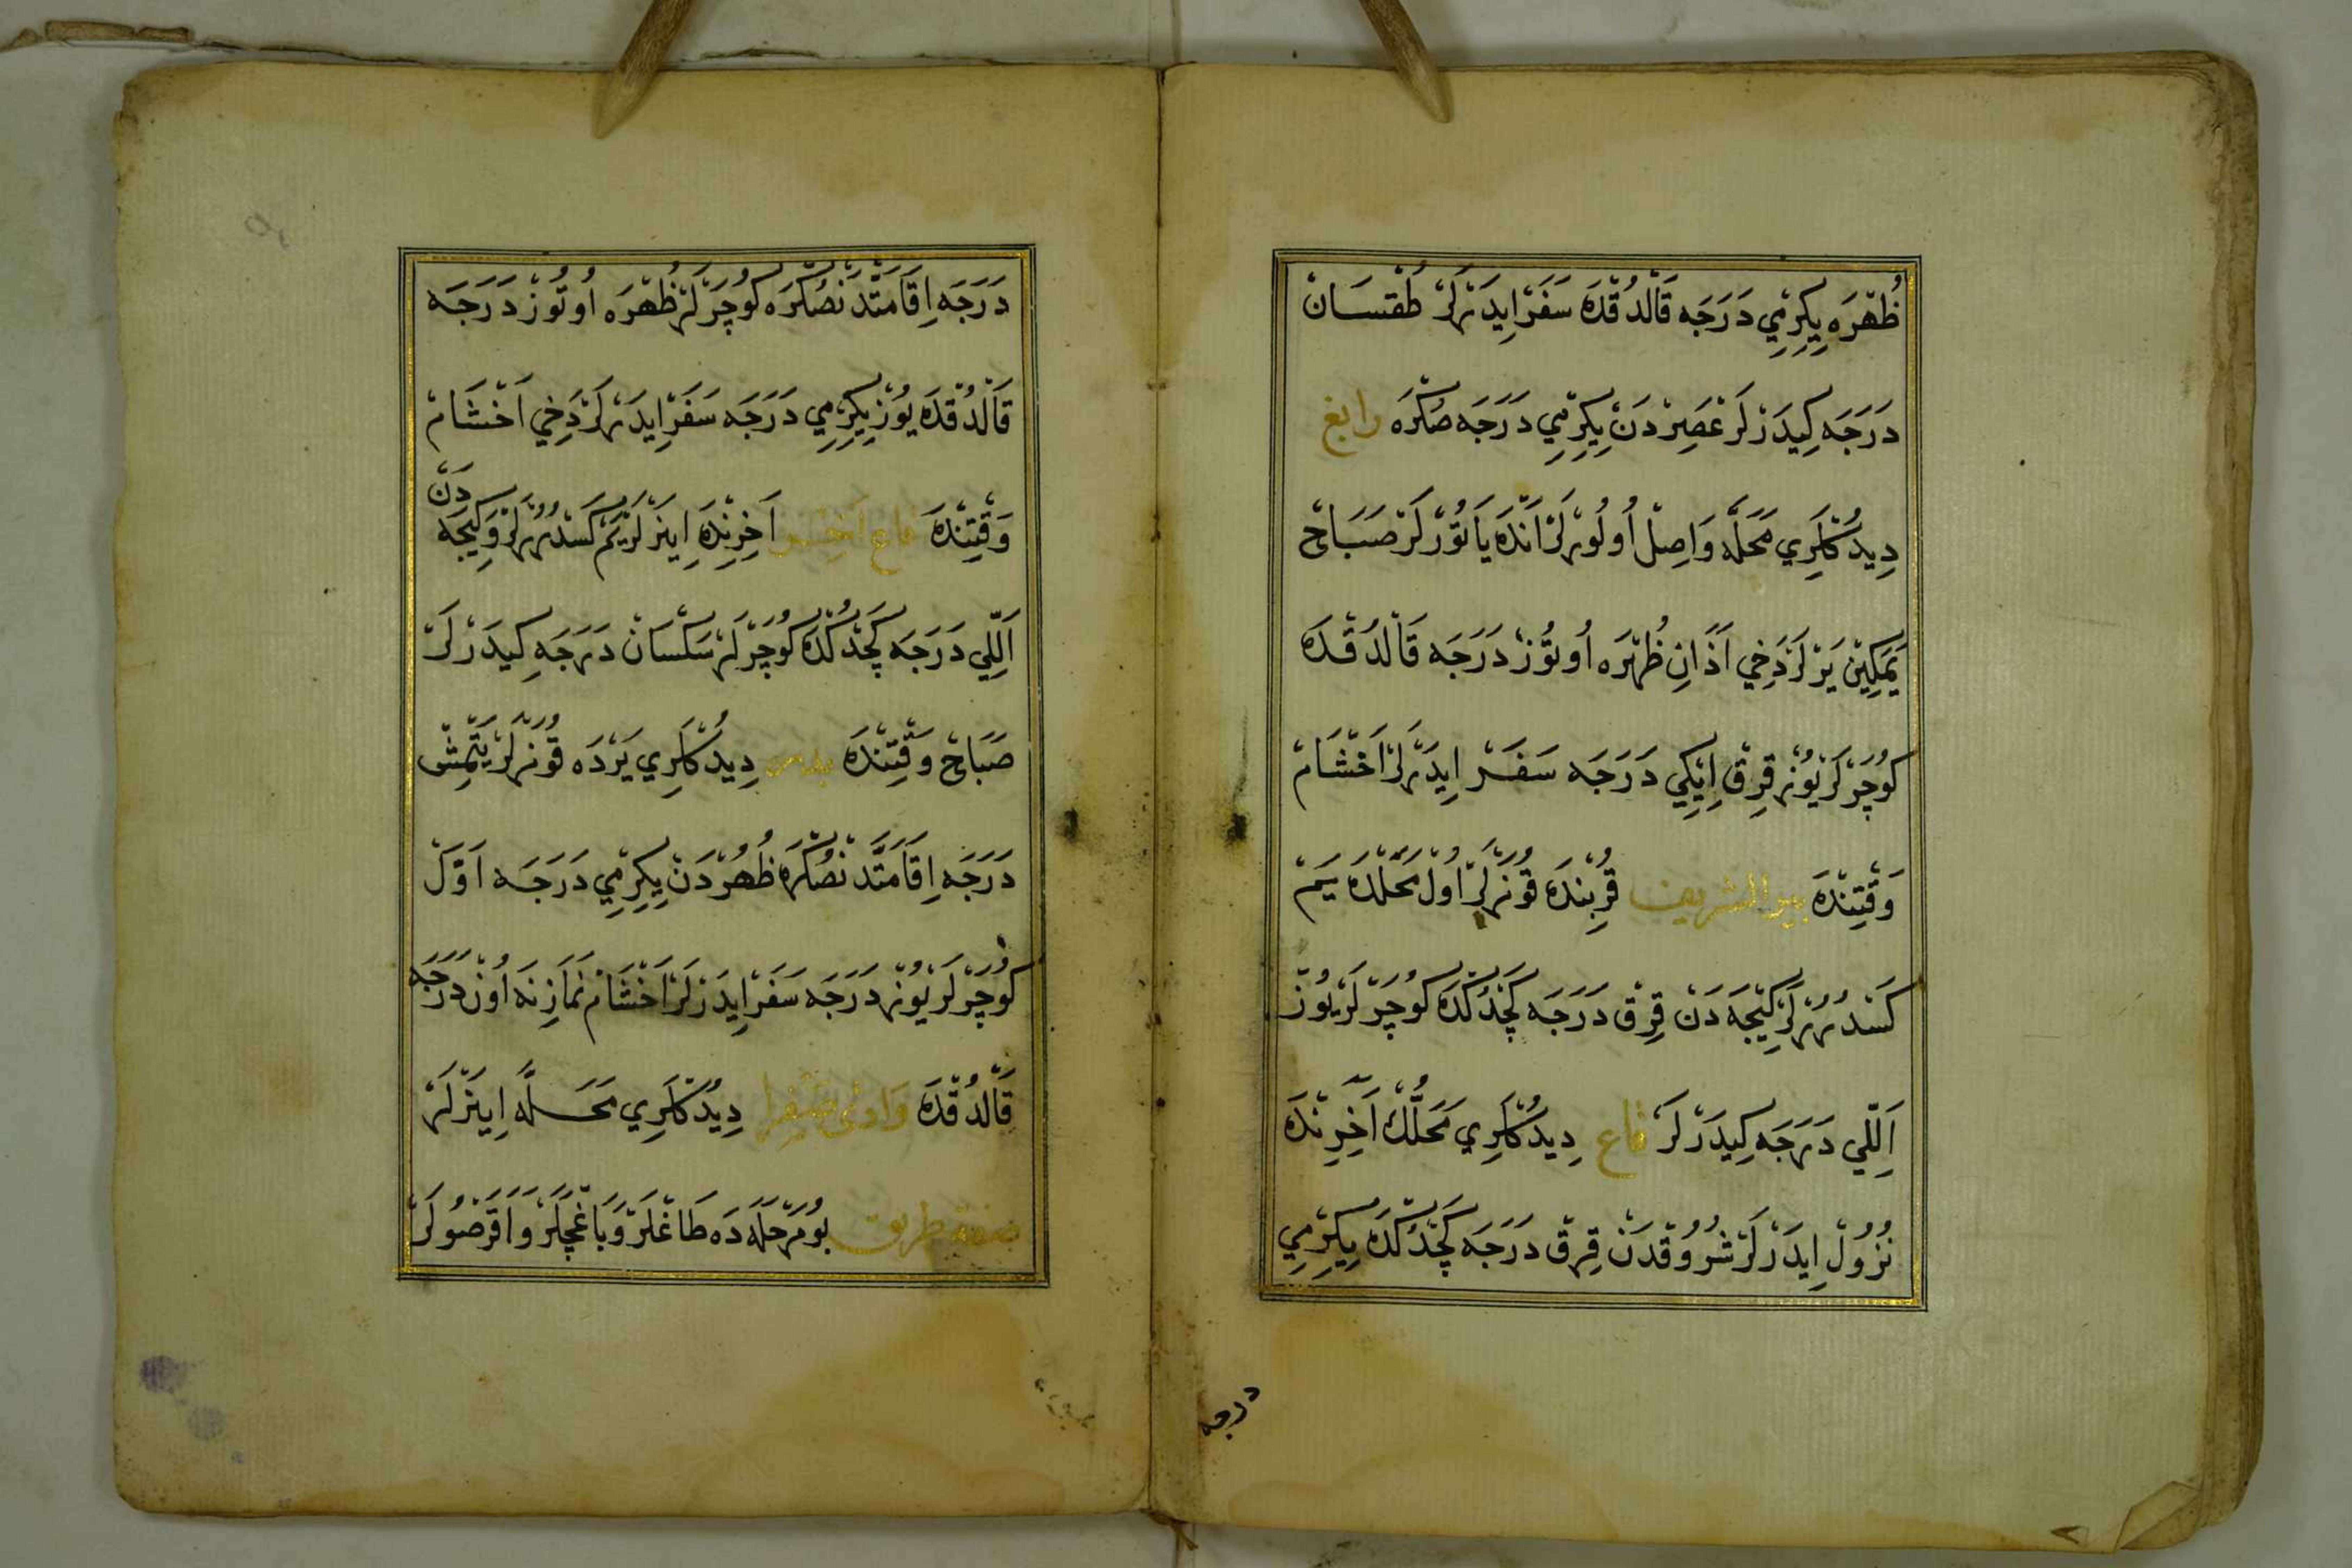 ظُهْرَه يِكِرْمِي دَرَجَه قَالْدُقْدَه سَفَرْ اِيدَرْلَرْ طُقْسَانْ
دَرَجَه كِيدَرْلَرْ عَصِرْدَنْ يِكِرْمِي دَرَجَه صُكْرَه رابغ
دِيدُكْلَرِي مَحَلَّه وَاصِلْ اُولُورْلَرْ اَنْدَه يَاتُورْلَرْ صَبَاحْ
يَمَكِينْ يَرْلَرْ دَخِي اَذَانِ ظُهْرَه اُوتُوزْ دَرَجَه قَالْدُقْدَه
كُوچَرْلَرْ يُوزْ قِرْقْ اِيكِي دَرَجَه سَفَرْ اِيدَرْلَرْ اَخْشَامْ
وَقْتِنْدَه بير الشريف قُرْبِنْدَه قُونَرْلَرْ اُولْ مَحَلْدَه يَمْ
كَسْدُرُرْلَرْ كِيجَه دَنْ قِرْقْ دَرَجَه كَچْدُكْدَه كُوچَرْلَرْ يُوزْ
اَللِّي دَرَجَه كِيدَرْلَرْ قاع دِيدُكْلَرِي مَحَلُّكْ اَخِرِنْدَه
نُزُولْ اِيدَرْلَرْ شُرُوقْدَنْ قِرْقْ دَرَجَه كَچْدُكْدَه يِكِرْمِي
درجه
دَرَجَه اِقَامَتْدَنْصُكْرَه كُوچَرْلَرْ ظُهْرَه اُوتُوزْ دَرَجَه
قَالْدُقْدَه يُوزْ يِكِرْمِي دَرَجَه سَفَرْ اِيدَرْلَرْ دَخِي اَخْشَامْ
وَقْتِنْدَه قاع اَخِرِنْدَه اِينَرْلَرْ يَمْ كَسْدُرُرْلَرْ وَكِيجَه دَنْ
اَللِّي دَرَجَه كَچْدُكْدَه كُوچَرْلَرْ سَكْسَانْ دَرَجَه كِيدَرْلَرْ
صَبَاحْ وَقْتِنْدَه بدر دِيدُكْلَرِي يَرْدَه قُونَرْلَرْ يَتْمِشْ
دَرَجَه اِقَامَتْدَنْصُكْرَه ظُهُرْدَنْ يِكِرْمِي دَرَجَه اَوَّلْ
كُوچَرْلَرْ يُوزْ دَرَجَه سَفَرْ اِيدَرْلَرْ اَخْشَامْ نَمَازِنَه اُونْ دَرَجَه
قَالْدُقْدَه وَادئ صَفرا دِيدُكْلَرِي مَحَلَّه اِينَرْلَرْ
صفة طريق بُو مَرْحَلَه دَه طَاغْلَرْ وَبَاغْچَلَرْ وَاَقَرْصُولَرْ